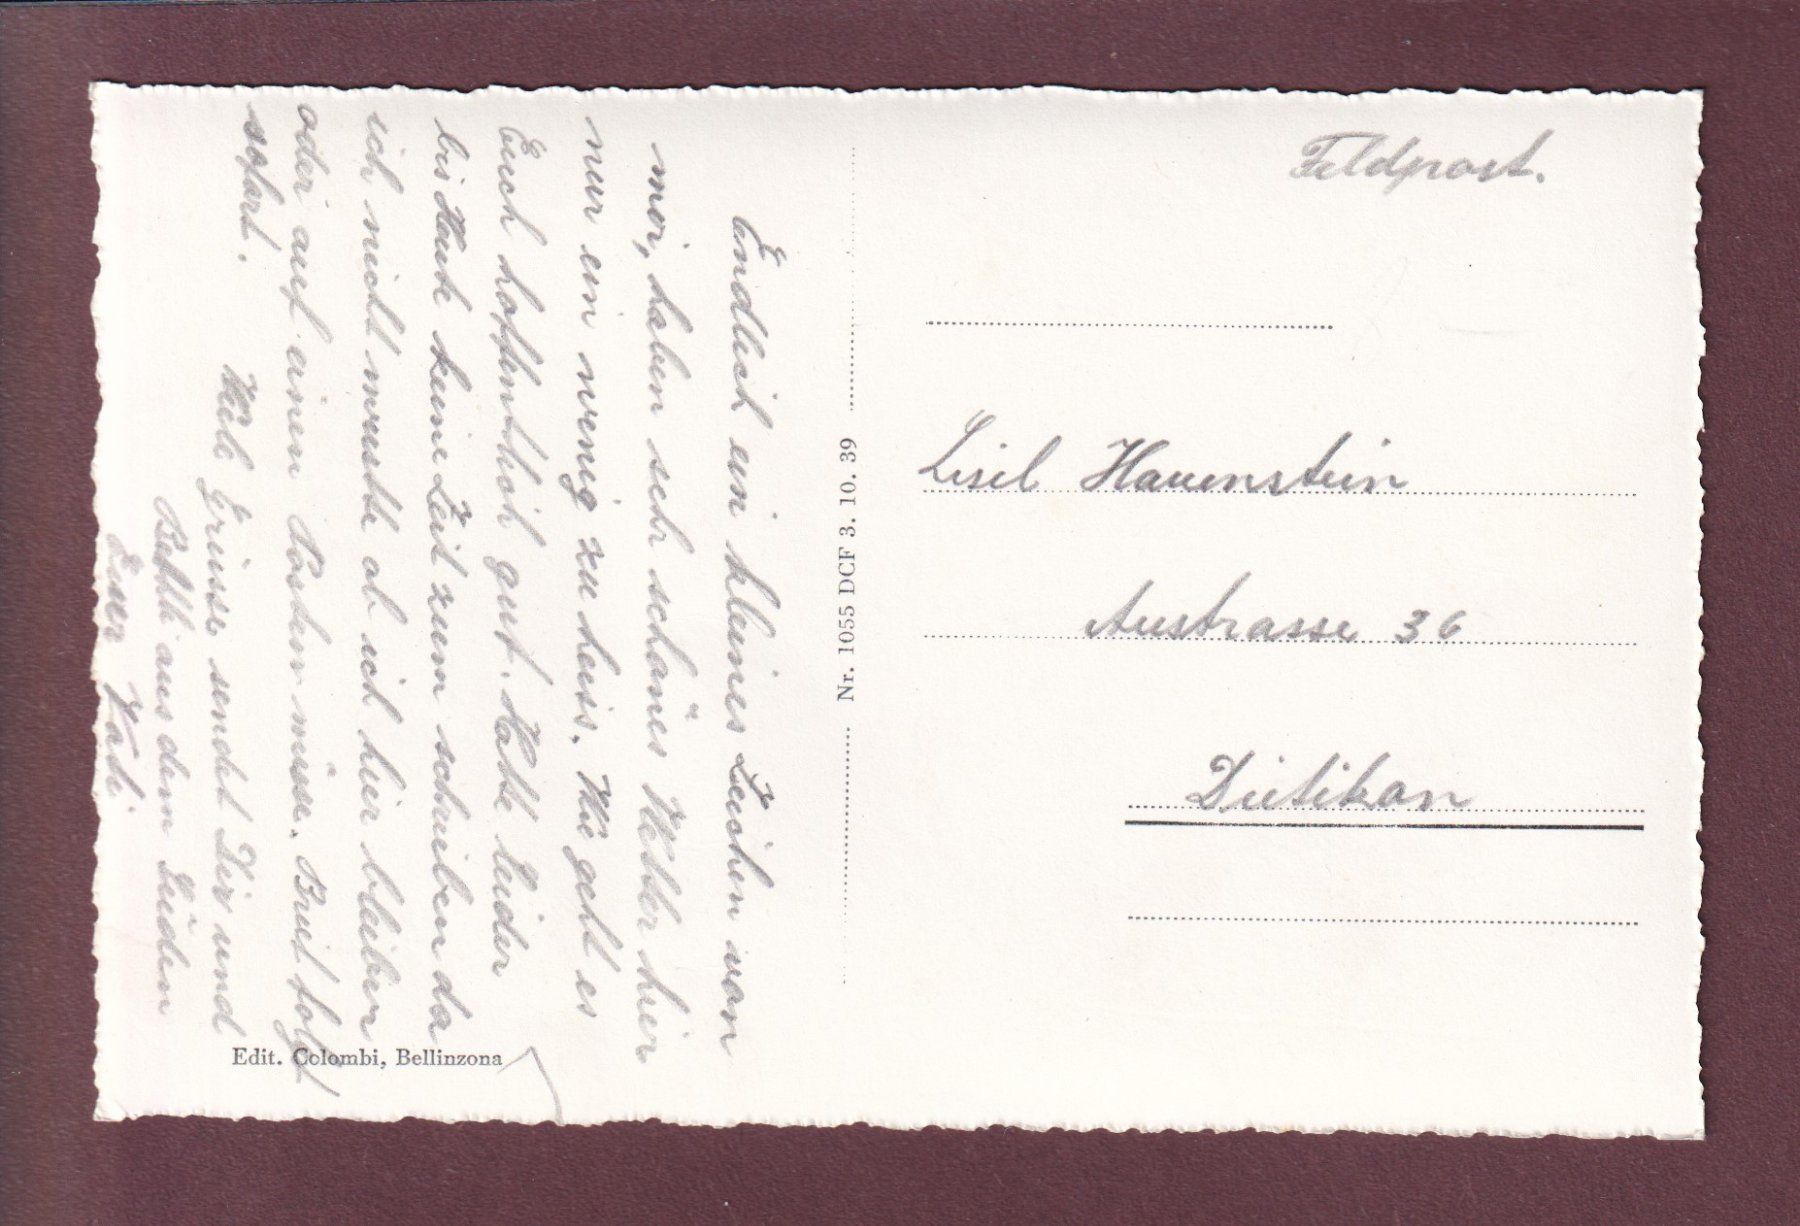 Endlich ein kleines Zeichen von
mir, haben sehr schönes Wetter hier
nur ein wenig zu heiss. Wie geht es
Euch hoffentlich gut. Hatte leider
bis Heute keine Zeit zum schreiben da
ich nicht wusste ob ich hier bleiben
oder auf einen Posten müsse. Brief folgt
sofort.
Viele Grüsse sendet Dir und
Bethli aus dem Süden
Euer Vati
Edit. Colombi, Bellinzona
Nr. 1055 DCF 3. 10. 39
Feldpost.
Lisel Hauenstein
Austrasse 36
Dietikon